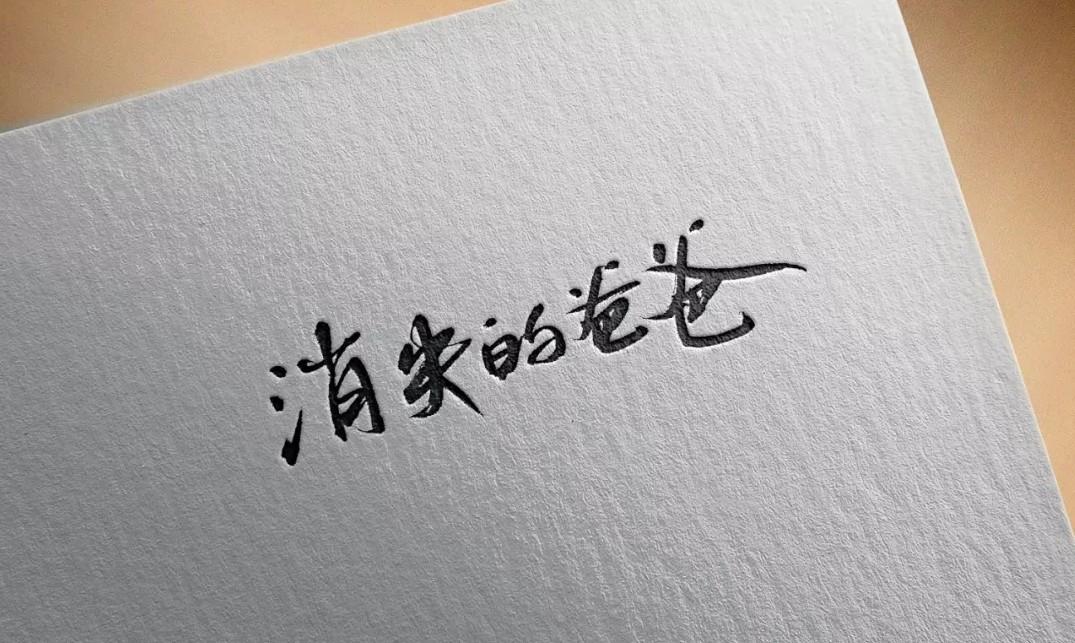 消失的爸爸